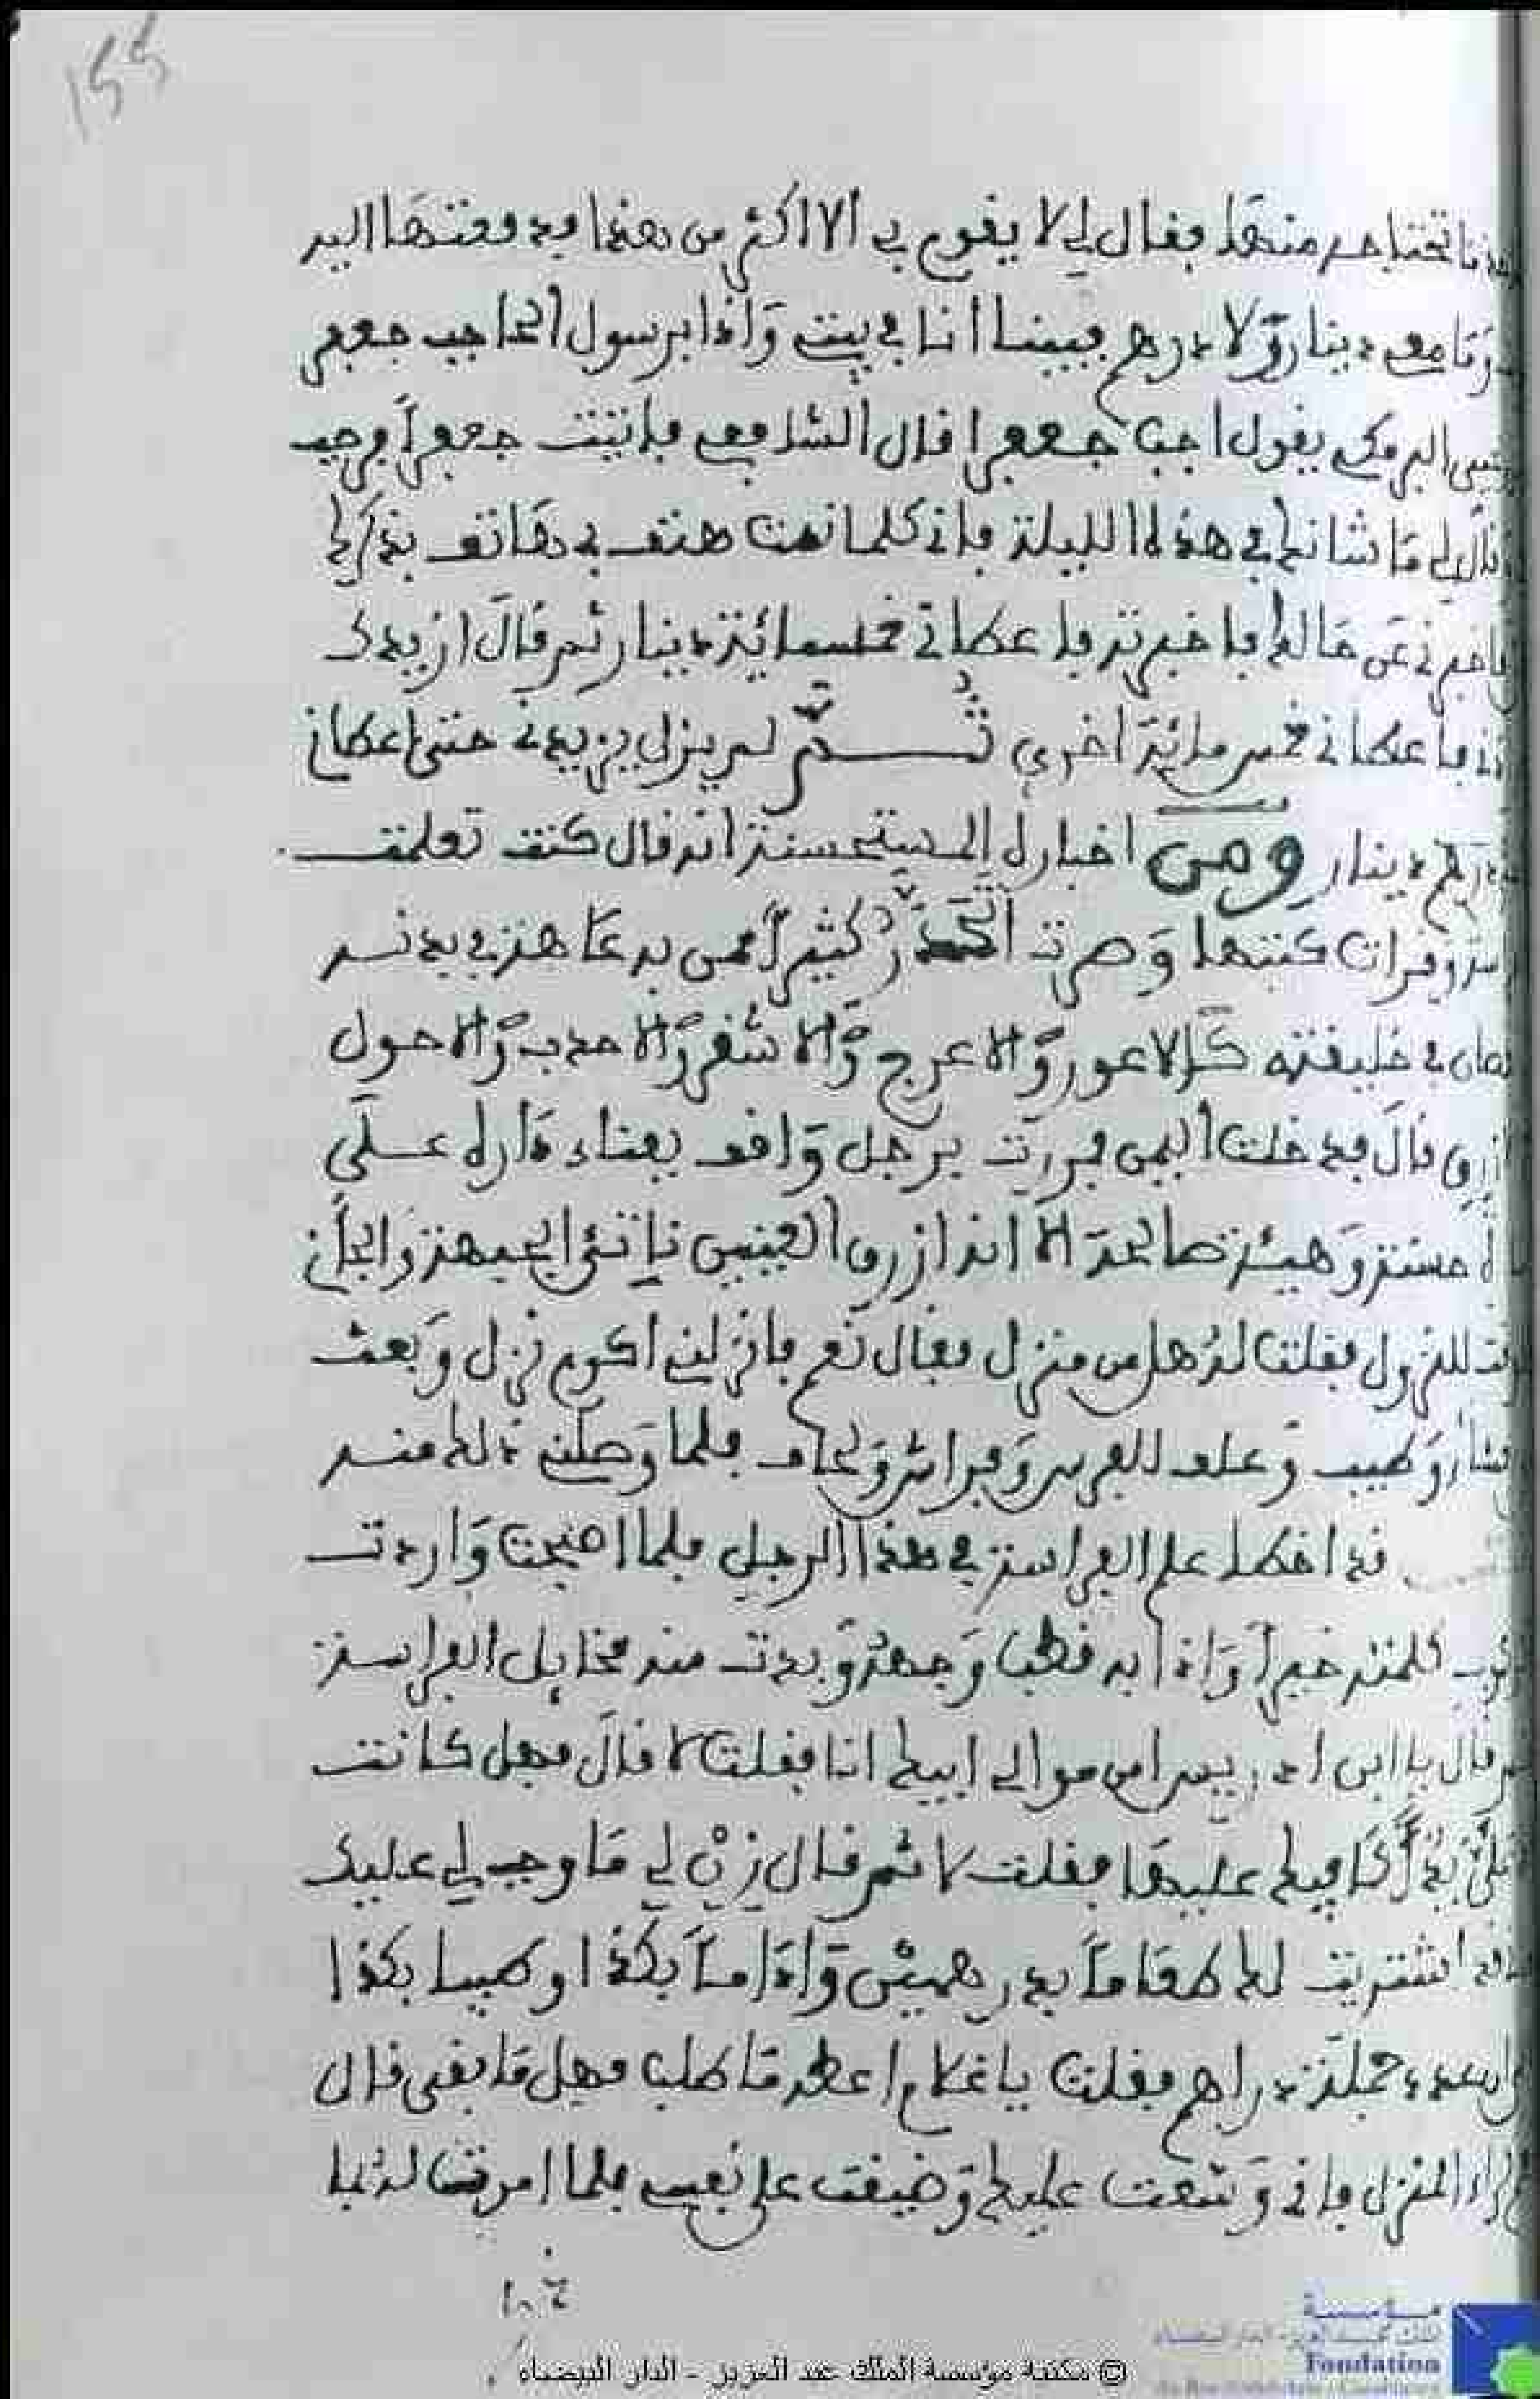 155
تحتاج منها فقال لي لا يقوم بي الا اكثر من هذا فدفعتها اليه
وما معي دينار ولا درهم فبينما انا في بيتي واذا برسول الحاجب جعفر
البرمكي يقول اجب جعفرا قال الشافعي فاتيت جعفرا فرحب
وقال لي ما شانك في هذه الليلة فاني كلما نمت هتف بي هاتف بذكرك
فاخبرني عن حالك فاخبرته فاعطاني خمسمائة دينار ثم قال ازيدك
فاعطاني خمس مائة اخرى ثم لم يزل يزيدني حتى اعطاني
دينار ومن اخباره المستحسنة انه قال كنت تعلمت
وقرات كتبها وصرت احذر كثيرا ممن به عاهة في بدنه
في خليفته كالاعور والاعرج والاشقر والاحدب والاحول
قال فدخلت اليمن فمررت برجل واقف بفناء داره على
حسنة وهيئة صالحة الا انه ازرق العينين ناتئ الجبهة
للنزول فقلت له هل من منزل فقال نعم فانزلني اكرم نزل وبعث
وطيب وعلف للفرس وفراش ولحاف فلما وصلني ذلك منه
قد اخطا علم الفراسة في هذا الرجل فلما اصبحت واردت
كلمته خيرا واذا به قطب وجهه وبدت منه مخايل الفراسة
قال يا ابن ادريس امن موالي ابيك انا فقلت لا قال فهل كانت
عليها فقلت لا ثم قال زن لي ما وجب لي عليك
اشتريت لك طعاما بدرهمين واداما بكذا وطيبا بكذا
جملة دراهم فقلت يا غلام اعطه ما طلب وهل ما بقى قال
المنزل فاني وسعت عليك وضيقت على نفسي فلما امرت له
© مكتبة مؤسسة الملك عبد العزيز - الدار البيضاء
مؤسسة
Fondation